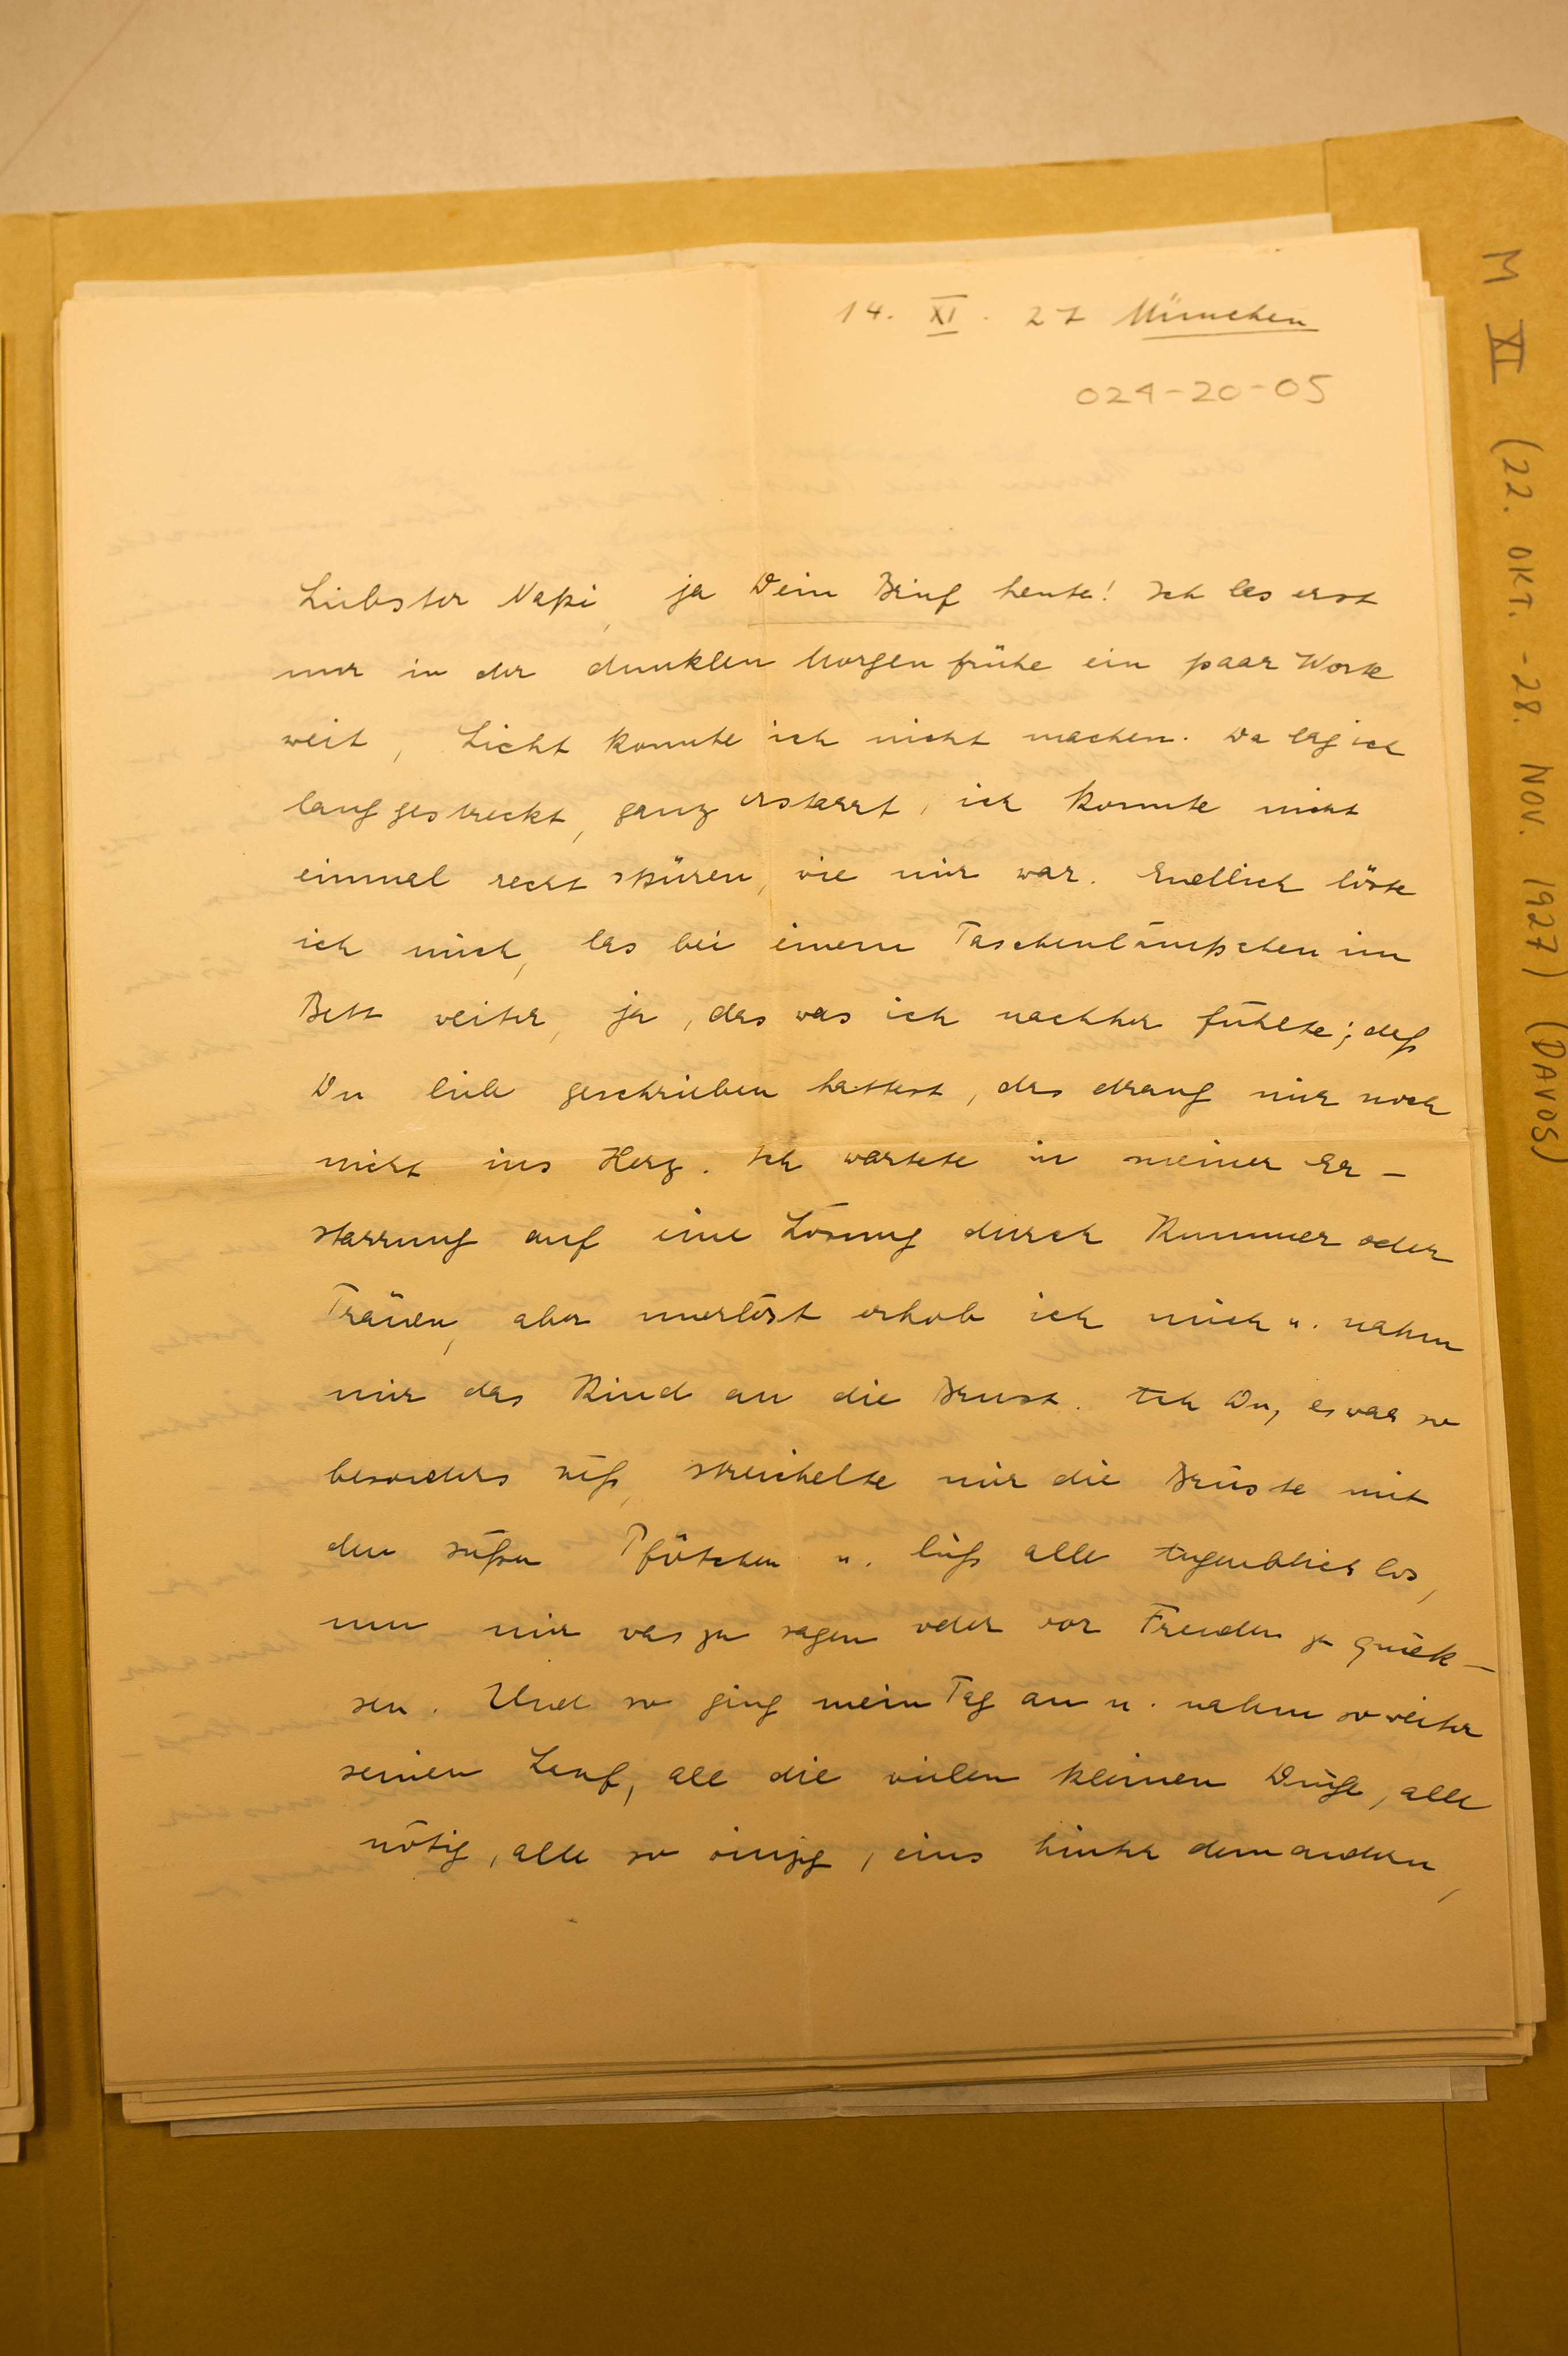 14. XI. 27 München
024-20-05
Liebster Napi, ja Dein Brief heute! Ich las erst
nur in der dunklen Morgenfrühe ein paar Worte
weit, Licht konnte ich nicht machen. Da lag ich
lang gestreckt, ganz erstarrt, ich konnte nicht
einmal recht spüren, wie mir war. Endlich löste
ich mich, las bei einem Taschenlämpchen im
Bett weiter, ja, das was ich nachher fühlte; daß
Du lieb geschrieben hattest, das drang mir noch
nicht ins Herz. Ich wartete in meiner Er-
starrung auf eine Lösung durch Kummer oder
Tränen, aber unerlöst erhob ich mich u. nahm
mir das Kind an die Brust. Ach Du, es war so
besonders süß, streichelte mir die Brüste mit
den süßen Pfötchen u. ließ alle Augenblick los,
um mir was zu sagen oder vor Freuden zu quiek-
sen. Und so ging mein Tag an u. nahm so weiter
seinen Lauf, all die vielen kleinen Dinge, alle
nötig, alle so winzig, eins hinter dem andern,
M XI (22. OKT. - 28. NOV. 1927) (DAVOS)